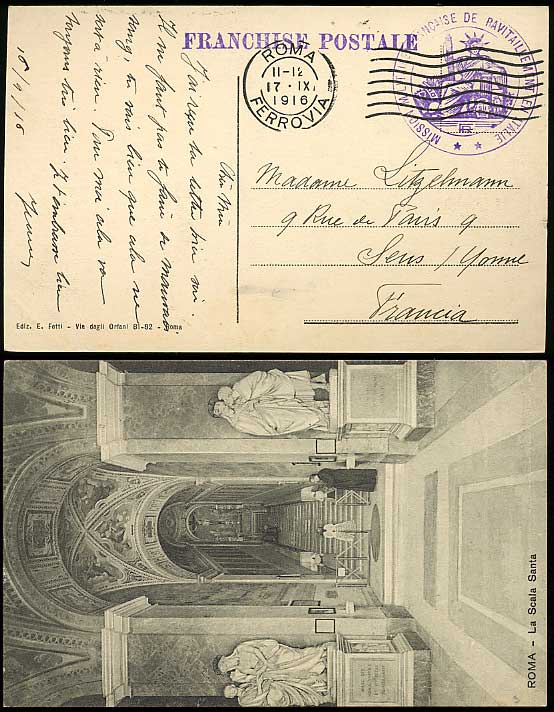 FRANCHISE POSTALE
ROMA
11-12
17 · IX
1916
FERROVIA
MISSION MILITAIRE FRANÇAISE DE RAVITAILLEMENT EN ITALIE
16/9/16
J'ai reçu ta lettre
Il ne faut pas te faire de mauvais
sang, tu sais bien que cela ne
sert à rien. Pour moi cela va
toujours très bien. Je t'embrasse bien
Madame Litzelmann
9 Rue de Paris 9
Sens / Yonne
Francia
Ediz. E. Fetti - Via degli Orfani 81-82 - Roma
ROMA - La Scala Santa